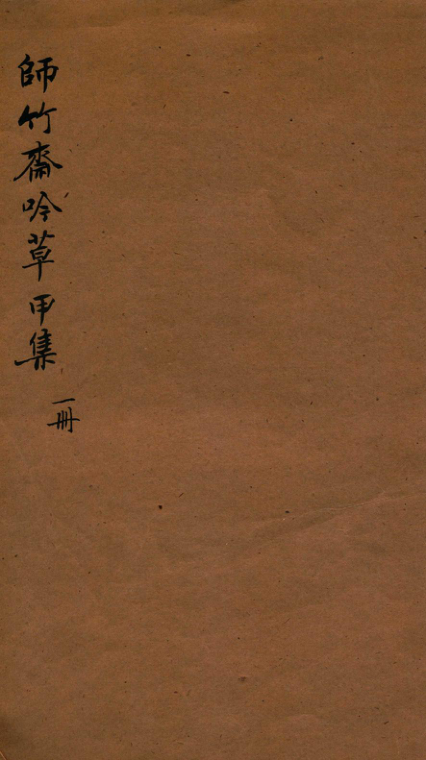 師竹齋吟草甲集
一冊